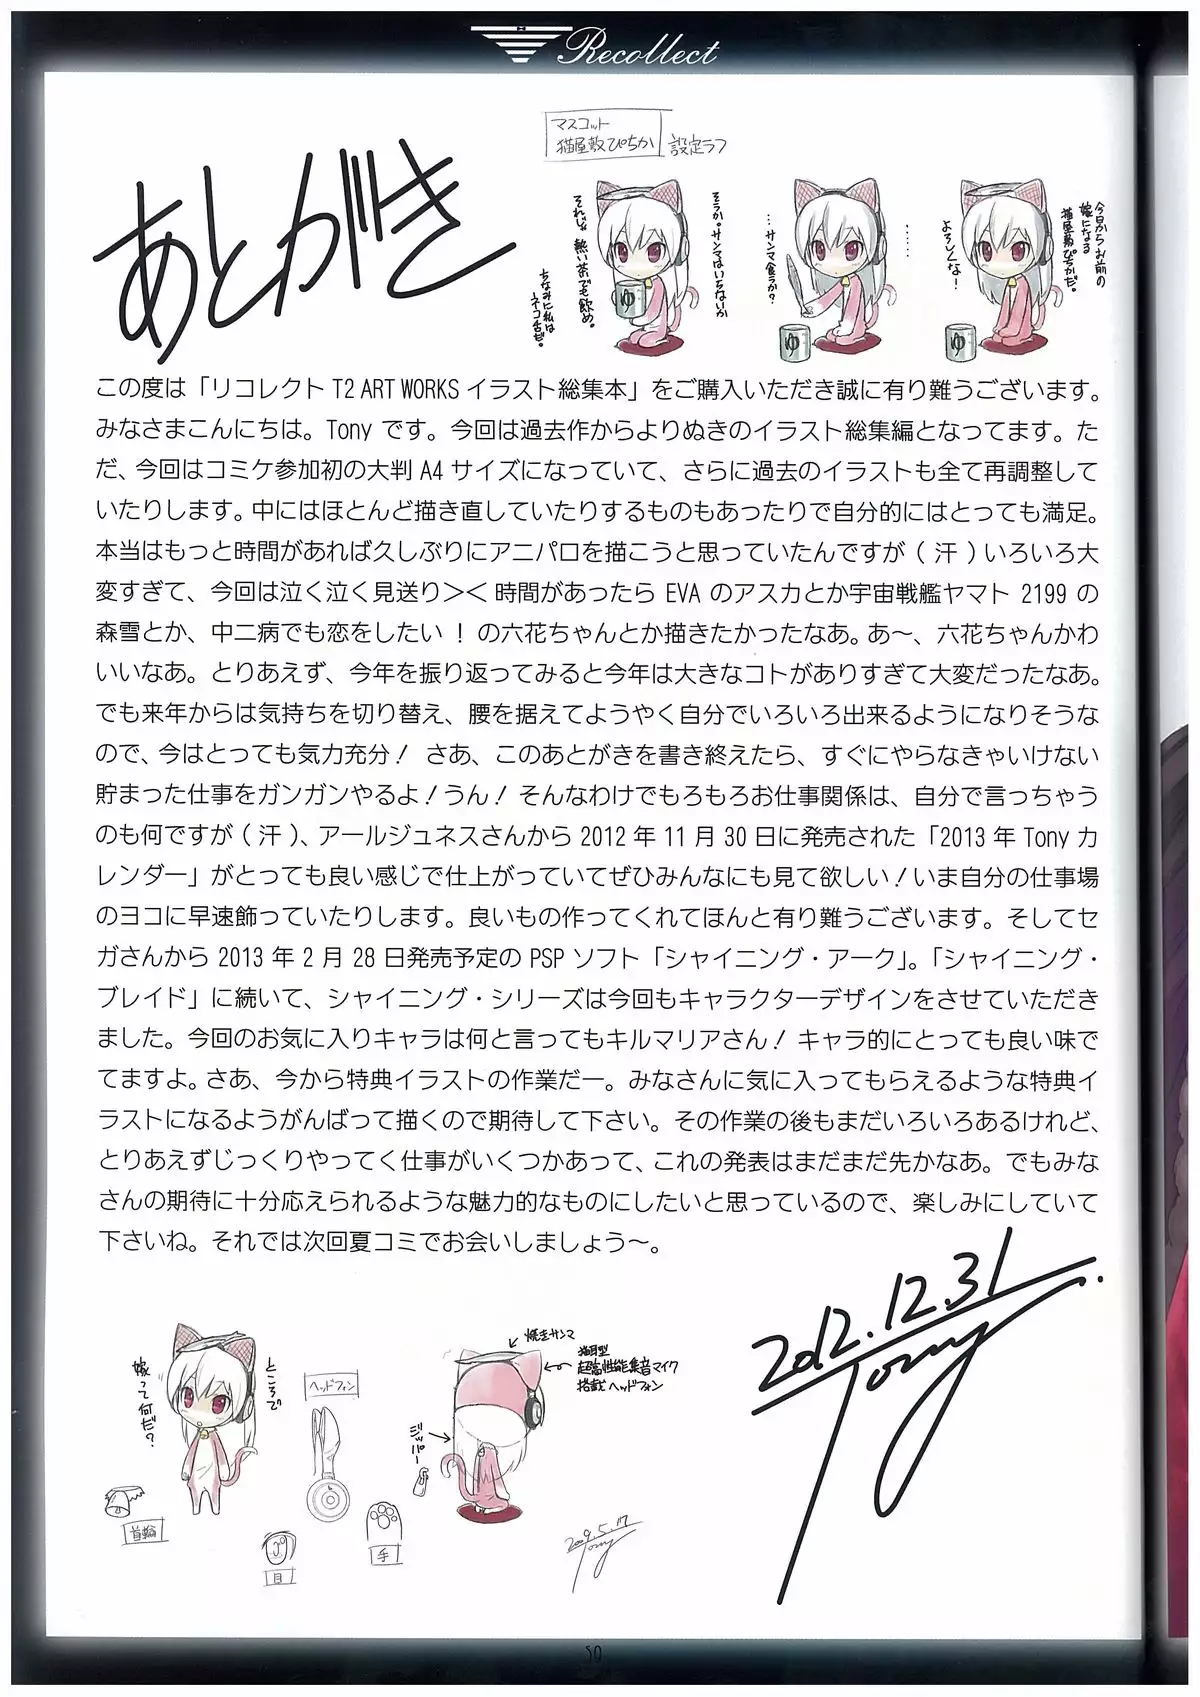 Recollect
マスコット
猫屋敷ぴちか
設定ラフ
あとがき
今日からお前の
嫁になる
猫屋敷ぴちかだ。
よろしくな！
……
…サンマ食うか？
そうか。サンマはいらないか
それじゃ
熱い茶でも飲め。
ちなみに私は
ネコ舌だ。
ゆ
ゆ
ゆ
この度は「リコレクト T2 ART WORKS イラスト総集本」をご購入いただき誠に有り難うございます。
みなさまこんにちは。Tony です。今回は過去作からよりぬきのイラスト総集編となってます。た
だ、今回はコミケ参加初の大判 A4 サイズになっていて、さらに過去のイラストも全て再調整して
いたりします。中にはほとんど描き直していたりするものもあったりで自分的にはとっても満足。
本当はもっと時間があれば久しぶりにアニパロを描こうと思っていたんですが（汗）いろいろ大
変すぎて、今回は泣く泣く見送り＞＜ 時間があったら EVA のアスカとか宇宙戦艦ヤマト 2199 の
森雪とか、中二病でも恋をしたい！の六花ちゃんとか描きたかったなあ。あ～、六花ちゃんかわ
いいなあ。とりあえず、今年を振り返ってみると今年は大きなコトがありすぎて大変だったなあ。
でも来年からは気持ちを切り替え、腰を据えてようやく自分でいろいろ出来るようになりそうな
ので、今はとっても気力充分！ さあ、このあとがきを書き終えたら、すぐにやらなきゃいけない
貯まった仕事をガンガンやるよ！うん！そんなわけでもろもろお仕事関係は、自分で言っちゃう
のも何ですが（汗）、アールジュネスさんから 2012 年 11 月 30 日に発売された「2013 年 Tony カ
レンダー」がとっても良い感じで仕上がっていてぜひみんなにも見て欲しい！いま自分の仕事場
のヨコに早速飾っていたりします。良いもの作ってくれてほんと有り難うございます。そしてセ
ガさんから 2013 年 2 月 28 日発売予定の PSP ソフト「シャイニング・アーク」。「シャイニング・
ブレイド」に続いて、シャイニング・シリーズは今回もキャラクターデザインをさせていただき
ました。今回のお気に入りキャラは何と言ってもキルマリアさん！キャラ的にとっても良い味で
てますよ。さあ、今から特典イラストの作業だー。みなさんに気に入ってもらえるような特典イ
ラストになるようがんばって描くので期待して下さい。その作業の後もまだいろいろあるけれど、
とりあえずじっくりやってく仕事がいくつかあって、これの発表はまだまだ先かなあ。でもみな
さんの期待に十分応えられるような魅力的なものにしたいと思っているので、楽しみにしていて
下さいね。それでは次回夏コミでお会いしましょう～。
2012.12.31
Tony
ところで
嫁って何だ？
ヘッドフォン
焼きサンマ
猫耳型
超高性能集音マイク
搭載ヘッドフォン
ジッパー
首輪
目
手
2009.5.17
Tony
50